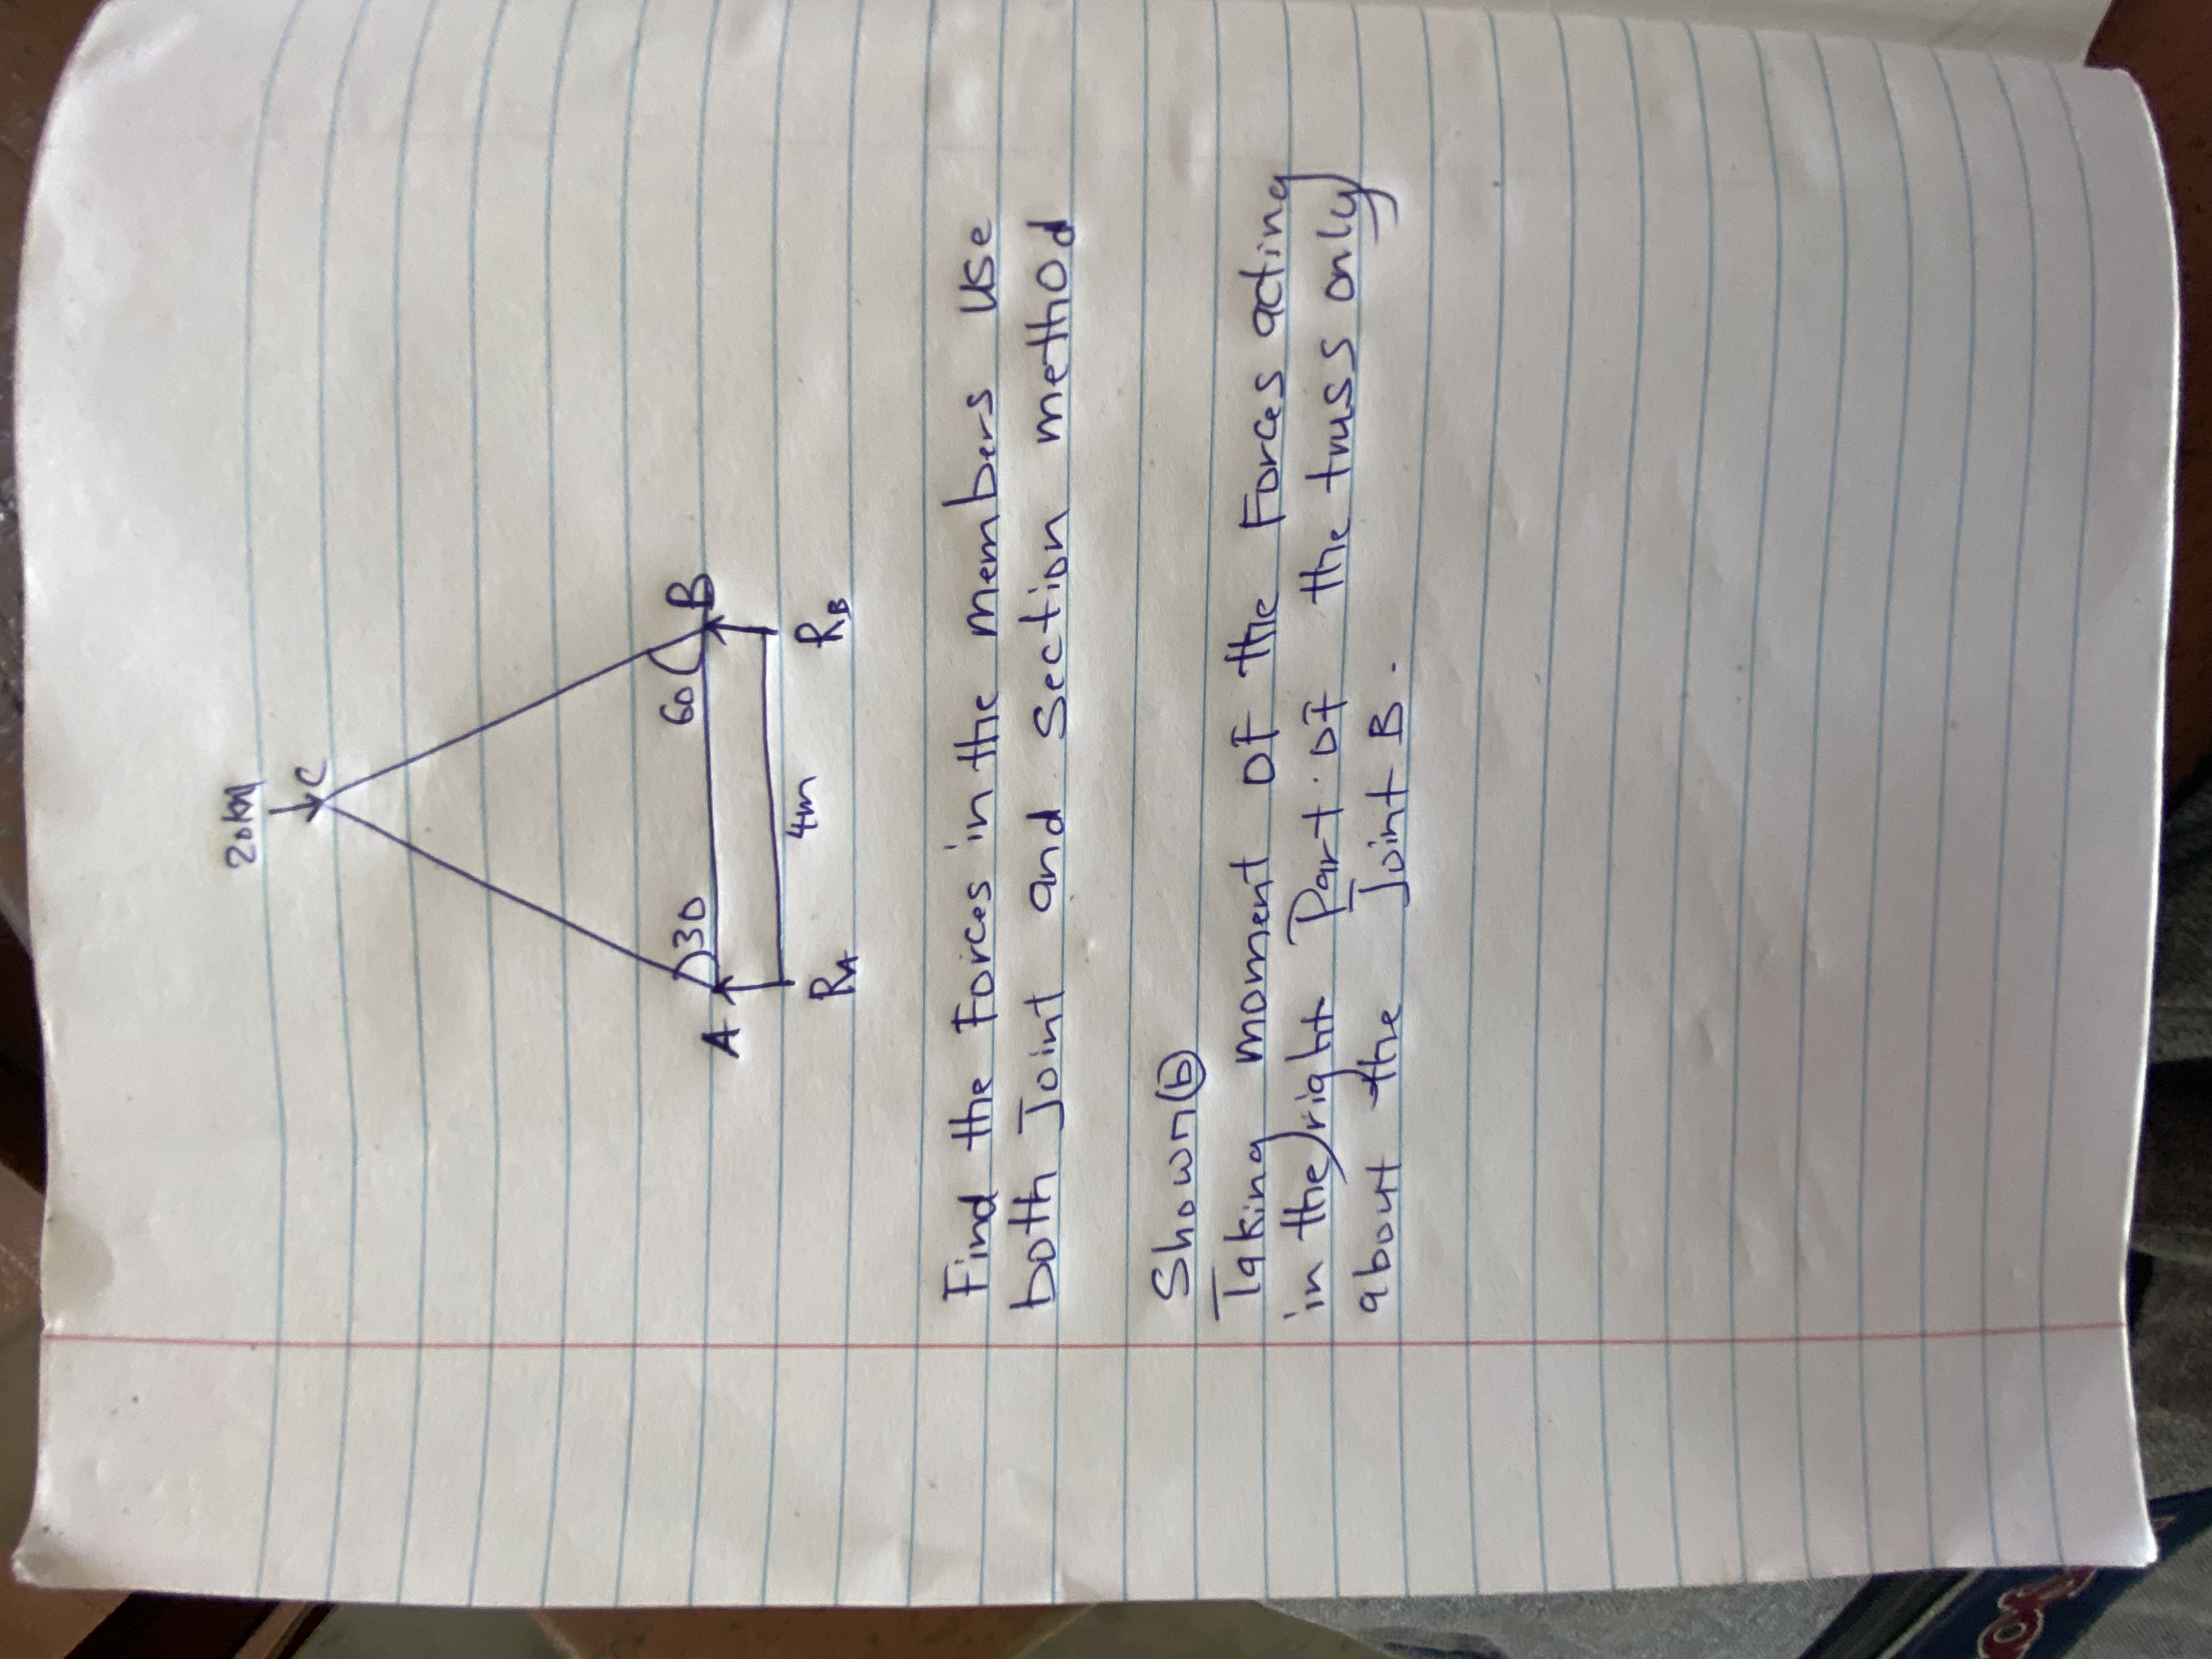 20kN
C
A
30
60
B
4m
RA
RB
Find the Forces in the members use
both Joint and Section method
Shown (b)
Taking moment OF the Forces acting
in the right Part OF the truss only
about the Joint B.